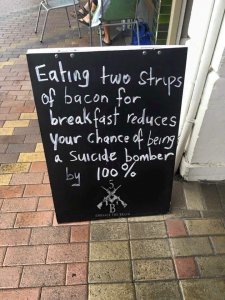 Eating two strips
of bacon for
breakfast reduces
your chance of being
a suicide bomber
by 100%
S
B